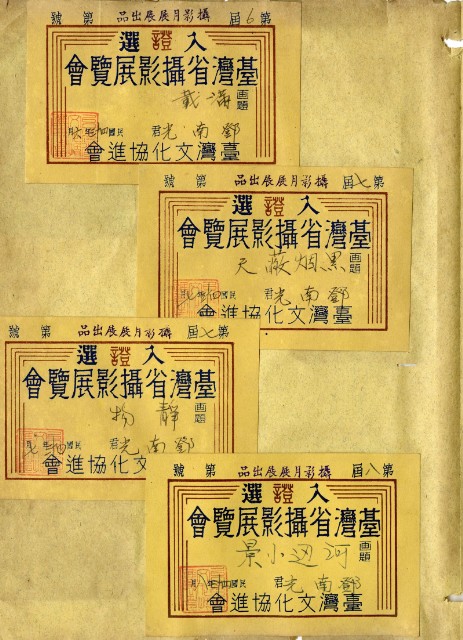 第6屆 攝影月展展出品 第 號
入證選
臺灣省攝影展覽會
画題 滿載
鄧南光君 民國 年六月
臺灣文化協進會
第七屆 攝影月展展出品 第 號
入證選
臺灣省攝影展覽會
画題 黑烟蔽天
鄧南光君 民國 年七月
臺灣文化協進會
第七屆 攝影月展展出品 第 號
入證選
臺灣省攝影展覽會
画題 靜物
鄧南光君 民國 年七月
臺灣文化協進會
第八屆 攝影月展展出品 第 號
入證選
臺灣省攝影展覽會
画題 河辺小景
鄧南光君 民國 年八月
臺灣文化協進會